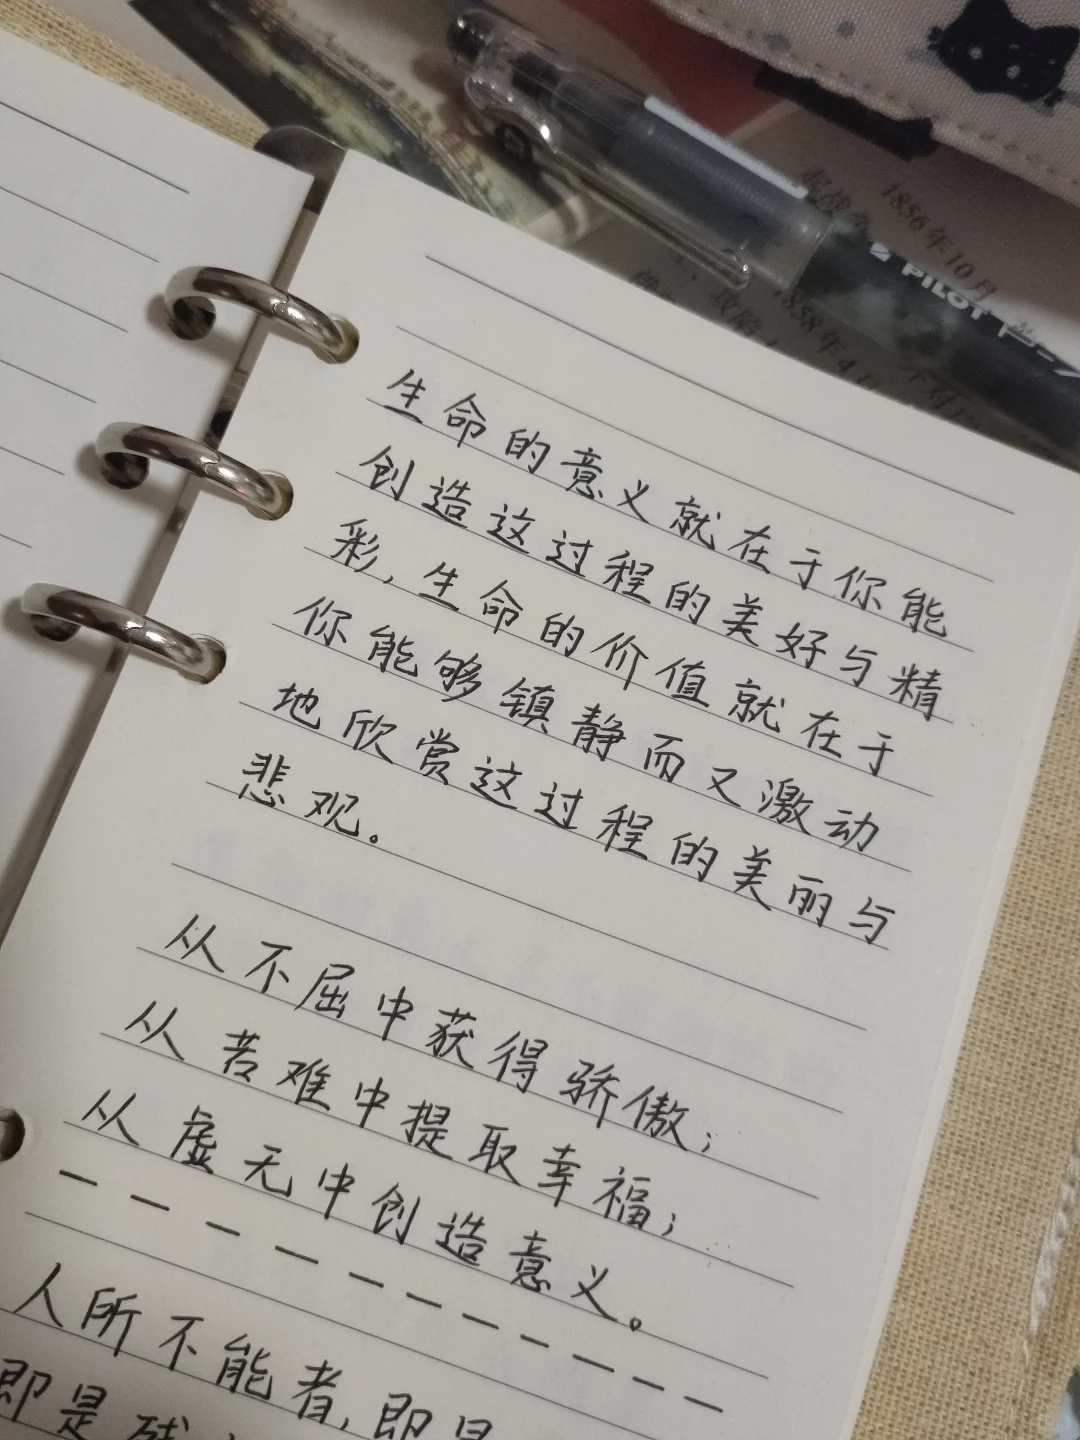 1856年10月
1858年4
PILOT
生命的意义就在于你能
创造这过程的美好与精
彩,生命的价值就在于
你能够镇静而又激动
地欣赏这过程的美丽与
悲观。
从不屈中获得骄傲;
从苦难中提取幸福;
从虚无中创造意义。
— — — — — — — — — —
人所不能者,即是
即是残